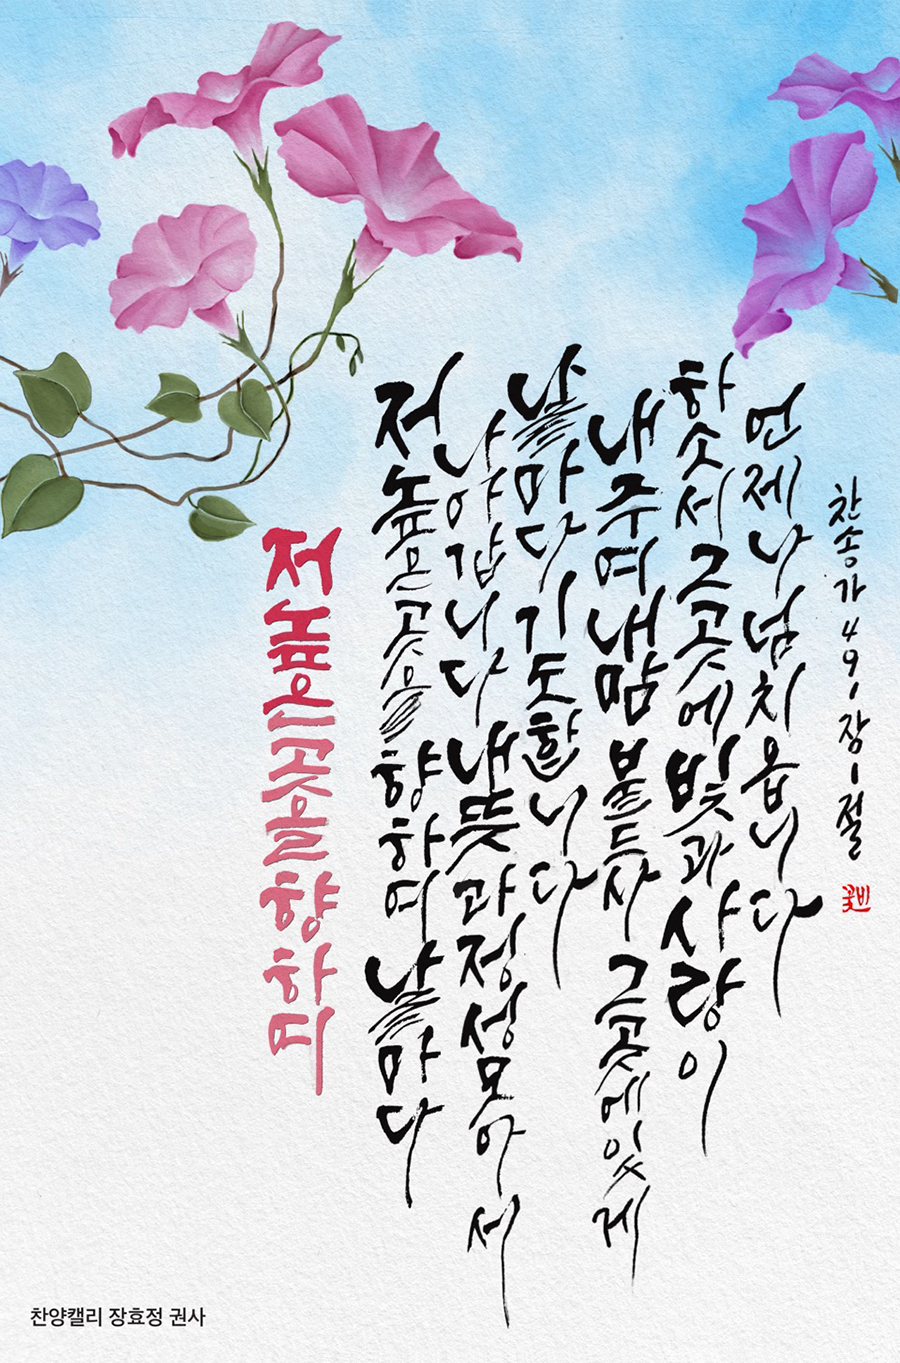 저높은곳을향하여
저높은곳을향하여날마다
나아갑니다내뜻과정성모아서
날마다기도합니다
내주여내맘붙드사그곳에있게
하소서그곳에빛과사랑이
언제나넘치옵니다
찬송가491장1절
꽃비
찬양캘리 장효정 권사